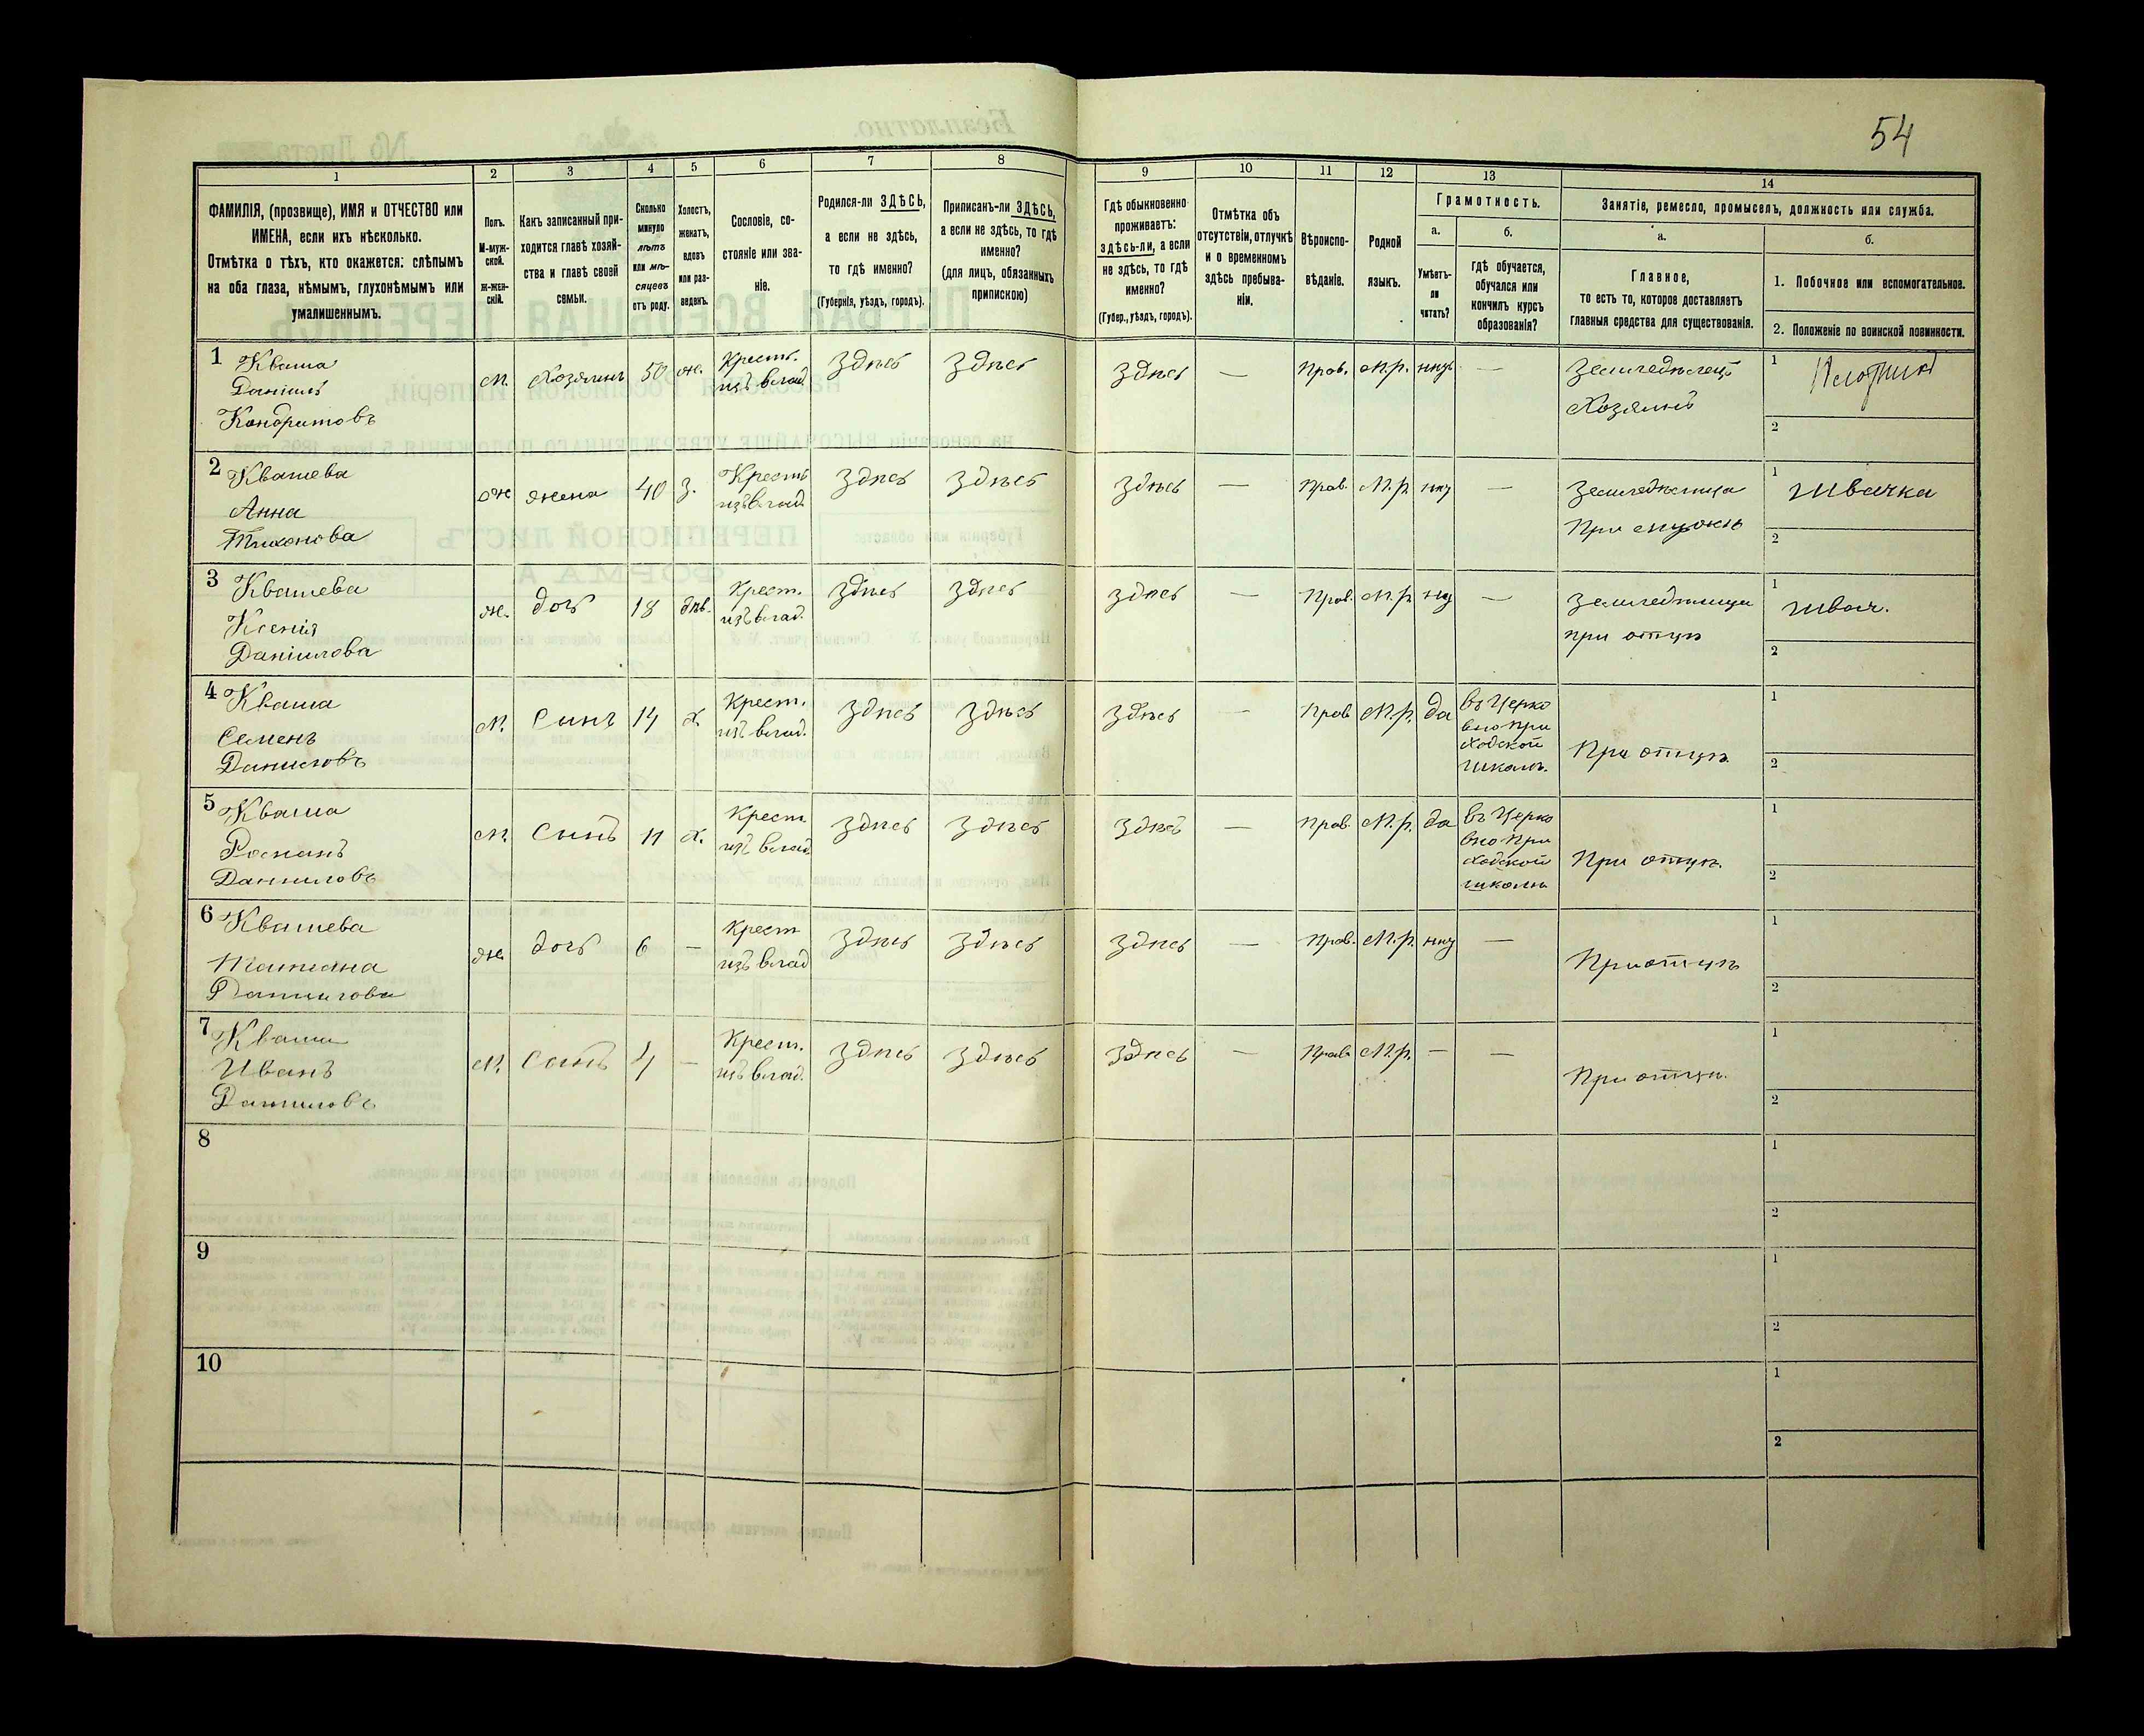 54
1
2
3
4
5
6
7
8
9
10
11
12
13
14
ФАМИЛІЯ, (прозвище), ИМЯ и ОТЧЕСТВО или
ИМЕНА, если ихъ нѣсколько.
Отмѣтка о тѣхъ, кто окажется: слѣпымъ
на оба глаза, нѣмымъ, глухонѣмымъ или
умалишеннымъ.
Полъ.
М-муж-
ской.
Ж-жен-
скій.
Какъ записанный при-
ходится главѣ хозяй-
ства и главѣ своей
семьи.
Сколько
минуло
лѣтъ
или мѣ-
сяцевъ
отъ роду.
Холостъ,
женатъ,
вдовъ
или раз-
веденъ.
Сословіе, со-
стояніе или зва-
ніе.
Родился-ли ЗДѢСЬ,
а если не здѣсь,
то гдѣ именно?
(Губернія, уѣздъ, городъ).
Приписанъ-ли ЗДѢСЬ,
а если не здѣсь, то гдѣ
именно?
(для лицъ, обязанныхъ
припискою)
Гдѣ обыкновенно
проживаетъ:
здѣсь-ли, а если
не здѣсь, то гдѣ
именно?
(Губер., уѣздъ, городъ).
Отмѣтка объ
отсутствіи, отлучкѣ
и о временномъ
здѣсь пребыва-
ніи.
Вѣроиспо-
вѣданіе.
Родной
языкъ.
Грамотность.
а.
Умѣетъ-
ли
читать?
б.
гдѣ обучается,
обучался или
кончилъ курсъ
образованія?
Занятіе, ремесло, промыселъ, должность или служба.
а.
Главное,
то есть то, которое доставляетъ
главныя средства для существованія.
б.
1. Побочное или вспомогательное.
2. Положеніе по воинской повинности.
1 Кваша
Даніилъ
Кондратовъ
м. Хозяинъ 50 ж. Крест. изъ влад. Здѣсь Здѣсь Здѣсь — Прав. М.р. — Земледѣлецъ
Хозяинъ
1
2
2 Квашева
Анна
Тихонова
ж жена 40 з. Крест изъ влад. Здѣсь Здѣсь Здѣсь — Прав. М.р. — Земледѣлица
При мужѣ
1 швачка
2
3 Квашева
Ксенія
Даніилова
ж. дочь 18 дѣв. Крест. изъ влад. Здѣсь Здѣсь Здѣсь — Прав. М.р. — Земледѣлица
при отцѣ
1 швач.
2
4 Кваша
Семенъ
Даниловъ
м. Сынъ 14 х. Крест. изъ влад. Здѣсь Здѣсь Здѣсь — Прав М.р. да въ Церко
вно при
ходской
школѣ.
При отцѣ.
1
2
5 Кваша
Романъ
Даниловъ
м. Сынъ 11 х. Крест. изъ влад. Здѣсь Здѣсь Здѣсь — Прав. М.р. да въ Церко
вно при
ходской
школѣ
При отцѣ.
1
2
6 Квашева
Татіана
Данилова
ж. дочь 6 — Крест изъ влад Здѣсь Здѣсь Здѣсь — Прав. М.р. —
При отцѣ
1
2
7 Кваша
Иванъ
Даниловъ
м. Сынъ 4 — Крест. изъ влад. Здѣсь Здѣсь Здѣсь — Прав М.р. — —
При отцѣ.
1
2
8
1
2
9
1
2
10
1
2